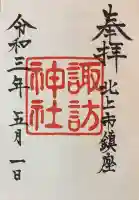 奉拝
北上市鎮座
諏訪
神社
令和三年五月一日